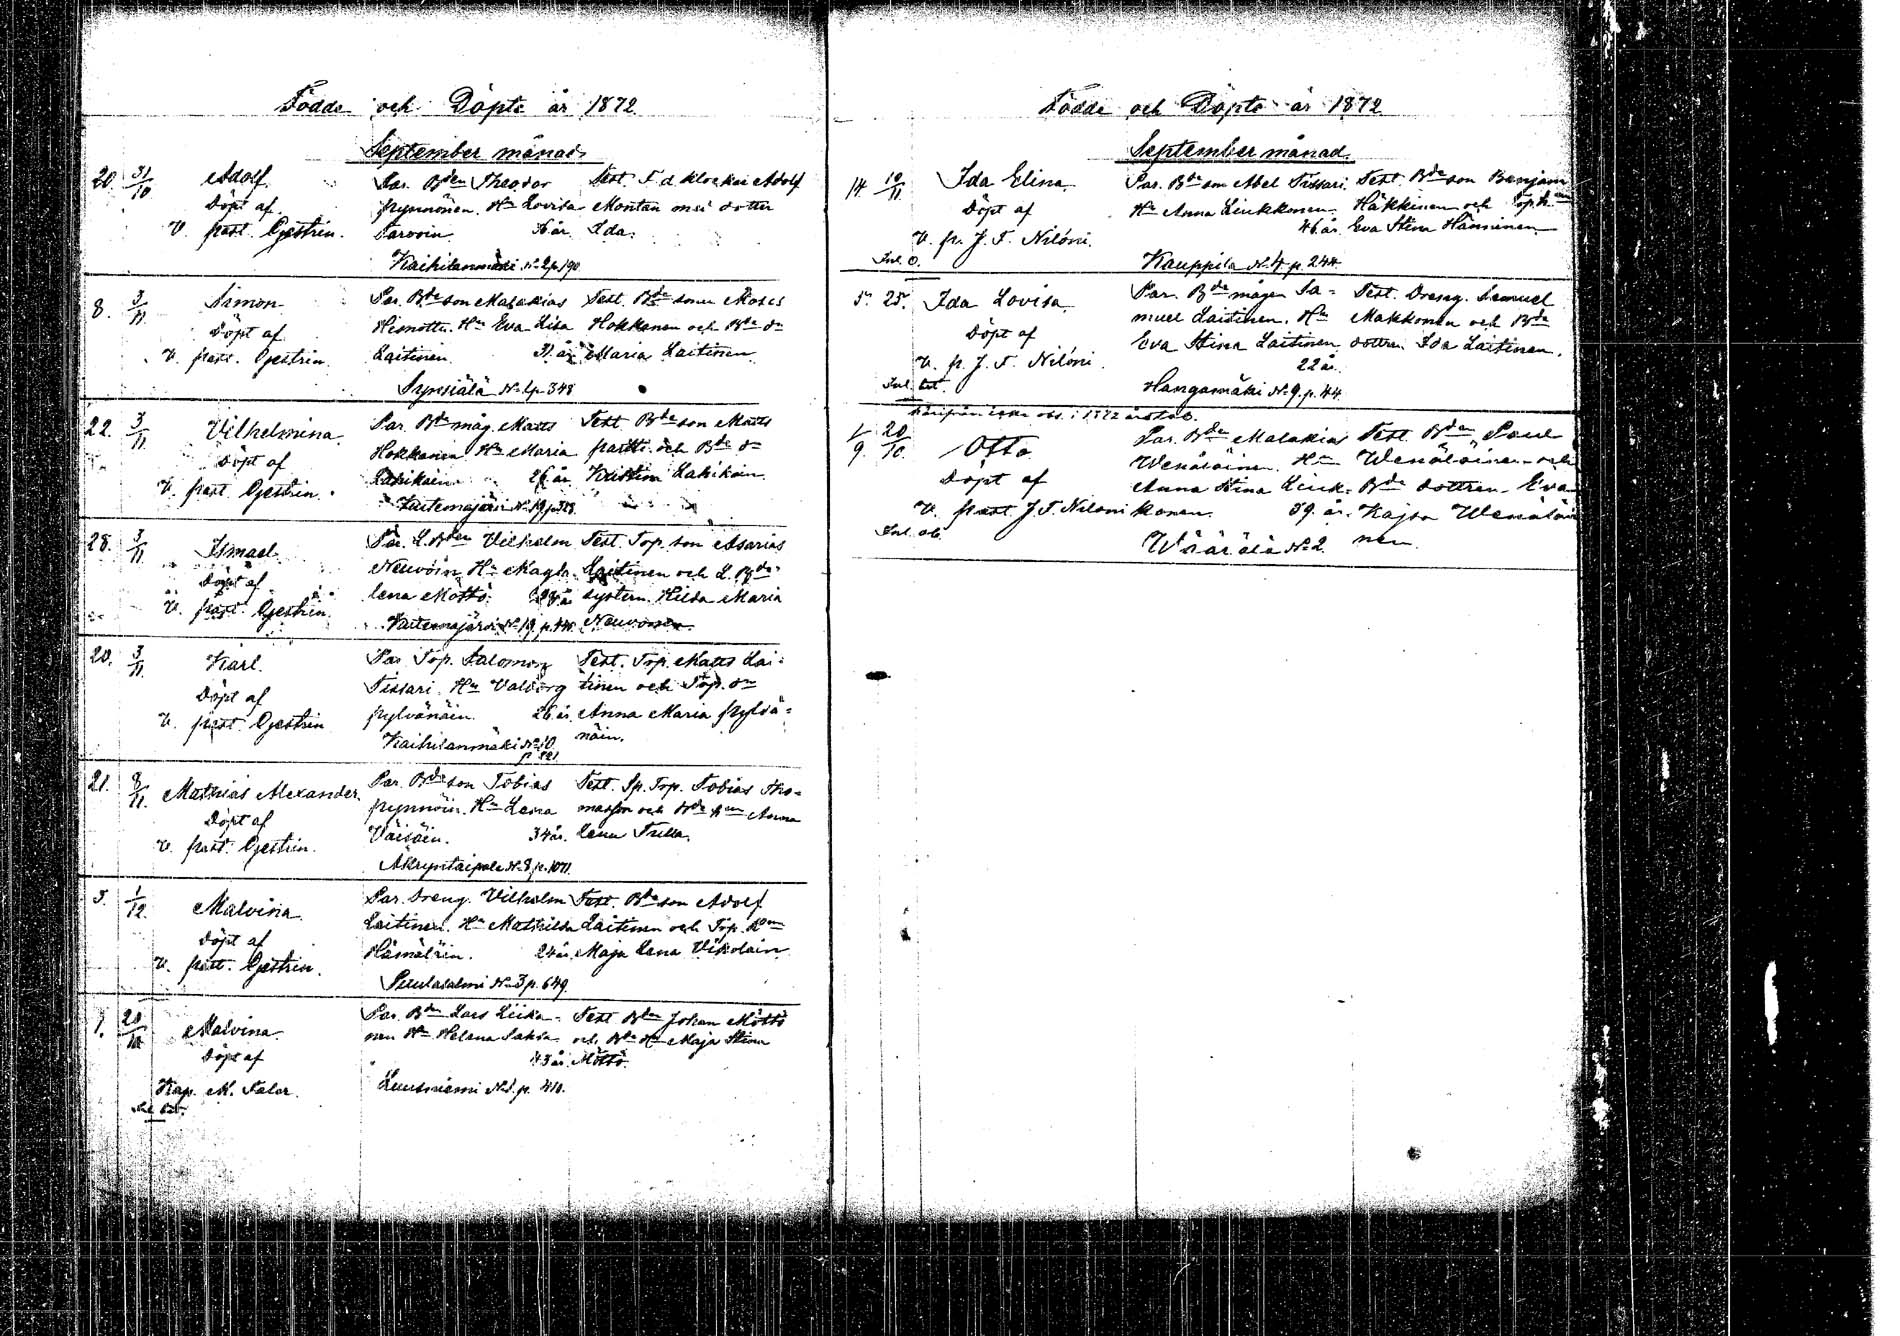 Födde och Döpte år 1872.
September månad.
20. 31/10 Adolf.
Döpt af
V. past. Gestrin.
Par. Bden Theodor
Pynnönen. Hn Lovisa
Tarvoin. 36 år.
Kaihilanmäki No 2 p. 190
Test. F. d. klockar Adolf
Montan med dotter
Ida.
8. 3/11 Simon
Döpt af
V. past. Gestrin.
Par. Bde son Malakias
Himottu. Hn Eva Lisa
Laitinen 31 år
Synsiälä No 1 p. 348
Test. Bde sonen Moses
Hokkanen och Bde dn
Maria Laitinen.
22. 3/11 Vilhelmina.
Döpt af
V. past. Gestrin.
Par. Bde måg. Matts
Hokkanen Hn Maria
Lahikain 26 år.
No 19 p. 328
Test Bde son Matts
Partti och Bde dn
Kristina Lahikain.
28. 3/11 Ismael.
Döpt af
V. past. Gestrin.
Par. L. Bden Vilhelm
Neuvoin Hn Magda-
lena Möttö. 28 år
No 19 p. 448.
Test. Torp. son Asarias
Laitinen och L. Bde
system. Hilda Maria
Neuvonen.
20. 3/11 Karl.
Döpt af
V. past. Gestrin
Par Torp. Salomon
Tissari. Hn Valborg
Pylvänäin. 26 år.
Kaihilanmäki No 10
p. 221
Test. Torp. Matts Lai-
tinen och Torp. dn
Anna Maria Pylvä-
näin.
21. 8/11 Mathias Alexander.
Döpt af
V. past. Gestrin.
Par. Bde son Tobias
Pynnöin. Hn Lena
Väisäin. 34 år.
No 8 p. 1071.
Test. Sp. Torp. Tobias Tho-
masson och Bde hn Anna
Lena Trella.
5. 1/12. Malvina.
Döpt af
V. past. Gestrin.
Par. Dreng. Vilhelm
Laitinen. Hn Mathilda
Hämäläin. 24 år.
Puulasalmi No 3 p. 649.
Test. Bde son Adolf
Laitinen och Torp. hn
Maja Lena Vikolain
1. 20/10 Malvina.
Döpt af
Kap. M. Faler.
Par. Bden Lars Liika-
nen Hn Helena Saksa
43 år.
Luusniemi No 1. p. 410.
Test Bden Johan Möttö
och Bde Hn Maja Stina
Möttö.
Födde och Döpte år 1872.
September månad.
14. 10/11 Ida Elina
Döpt af
V. p. J. F. Nilóni.
Par. Bde son Abel Tissari.
Hn Anna Liukkonen.
46 år.
Kauppila No 4 p. 244.
Test. Bde son Benjamin
Häkkinen och Torp. hn
Eva Stina Hänninen
5. 25. Ida Lovisa.
Döpt af
V. p. J. F. Nilóni.
Par. Bde mågen Sa-
muel Laitinen. Hn
Eva Stina Laitinen
22 år.
Hangasmäki No 9. p. 44.
Test. Dreng. Samuel
Makkonen och Bde
dottren Ida Laitinen.
1/9. 20/10. Otto
Döpt af
V. past. J. F. Niloni
Par. Bden Malakias
Wenäläinen. Hn
Anna Stina Liuk-
konen. 39. år.
Wäärälä No 2.
Test. Bden Paul
Wenäläinen och
Bde dottren Eva
Kajsa Wenäläi
nen